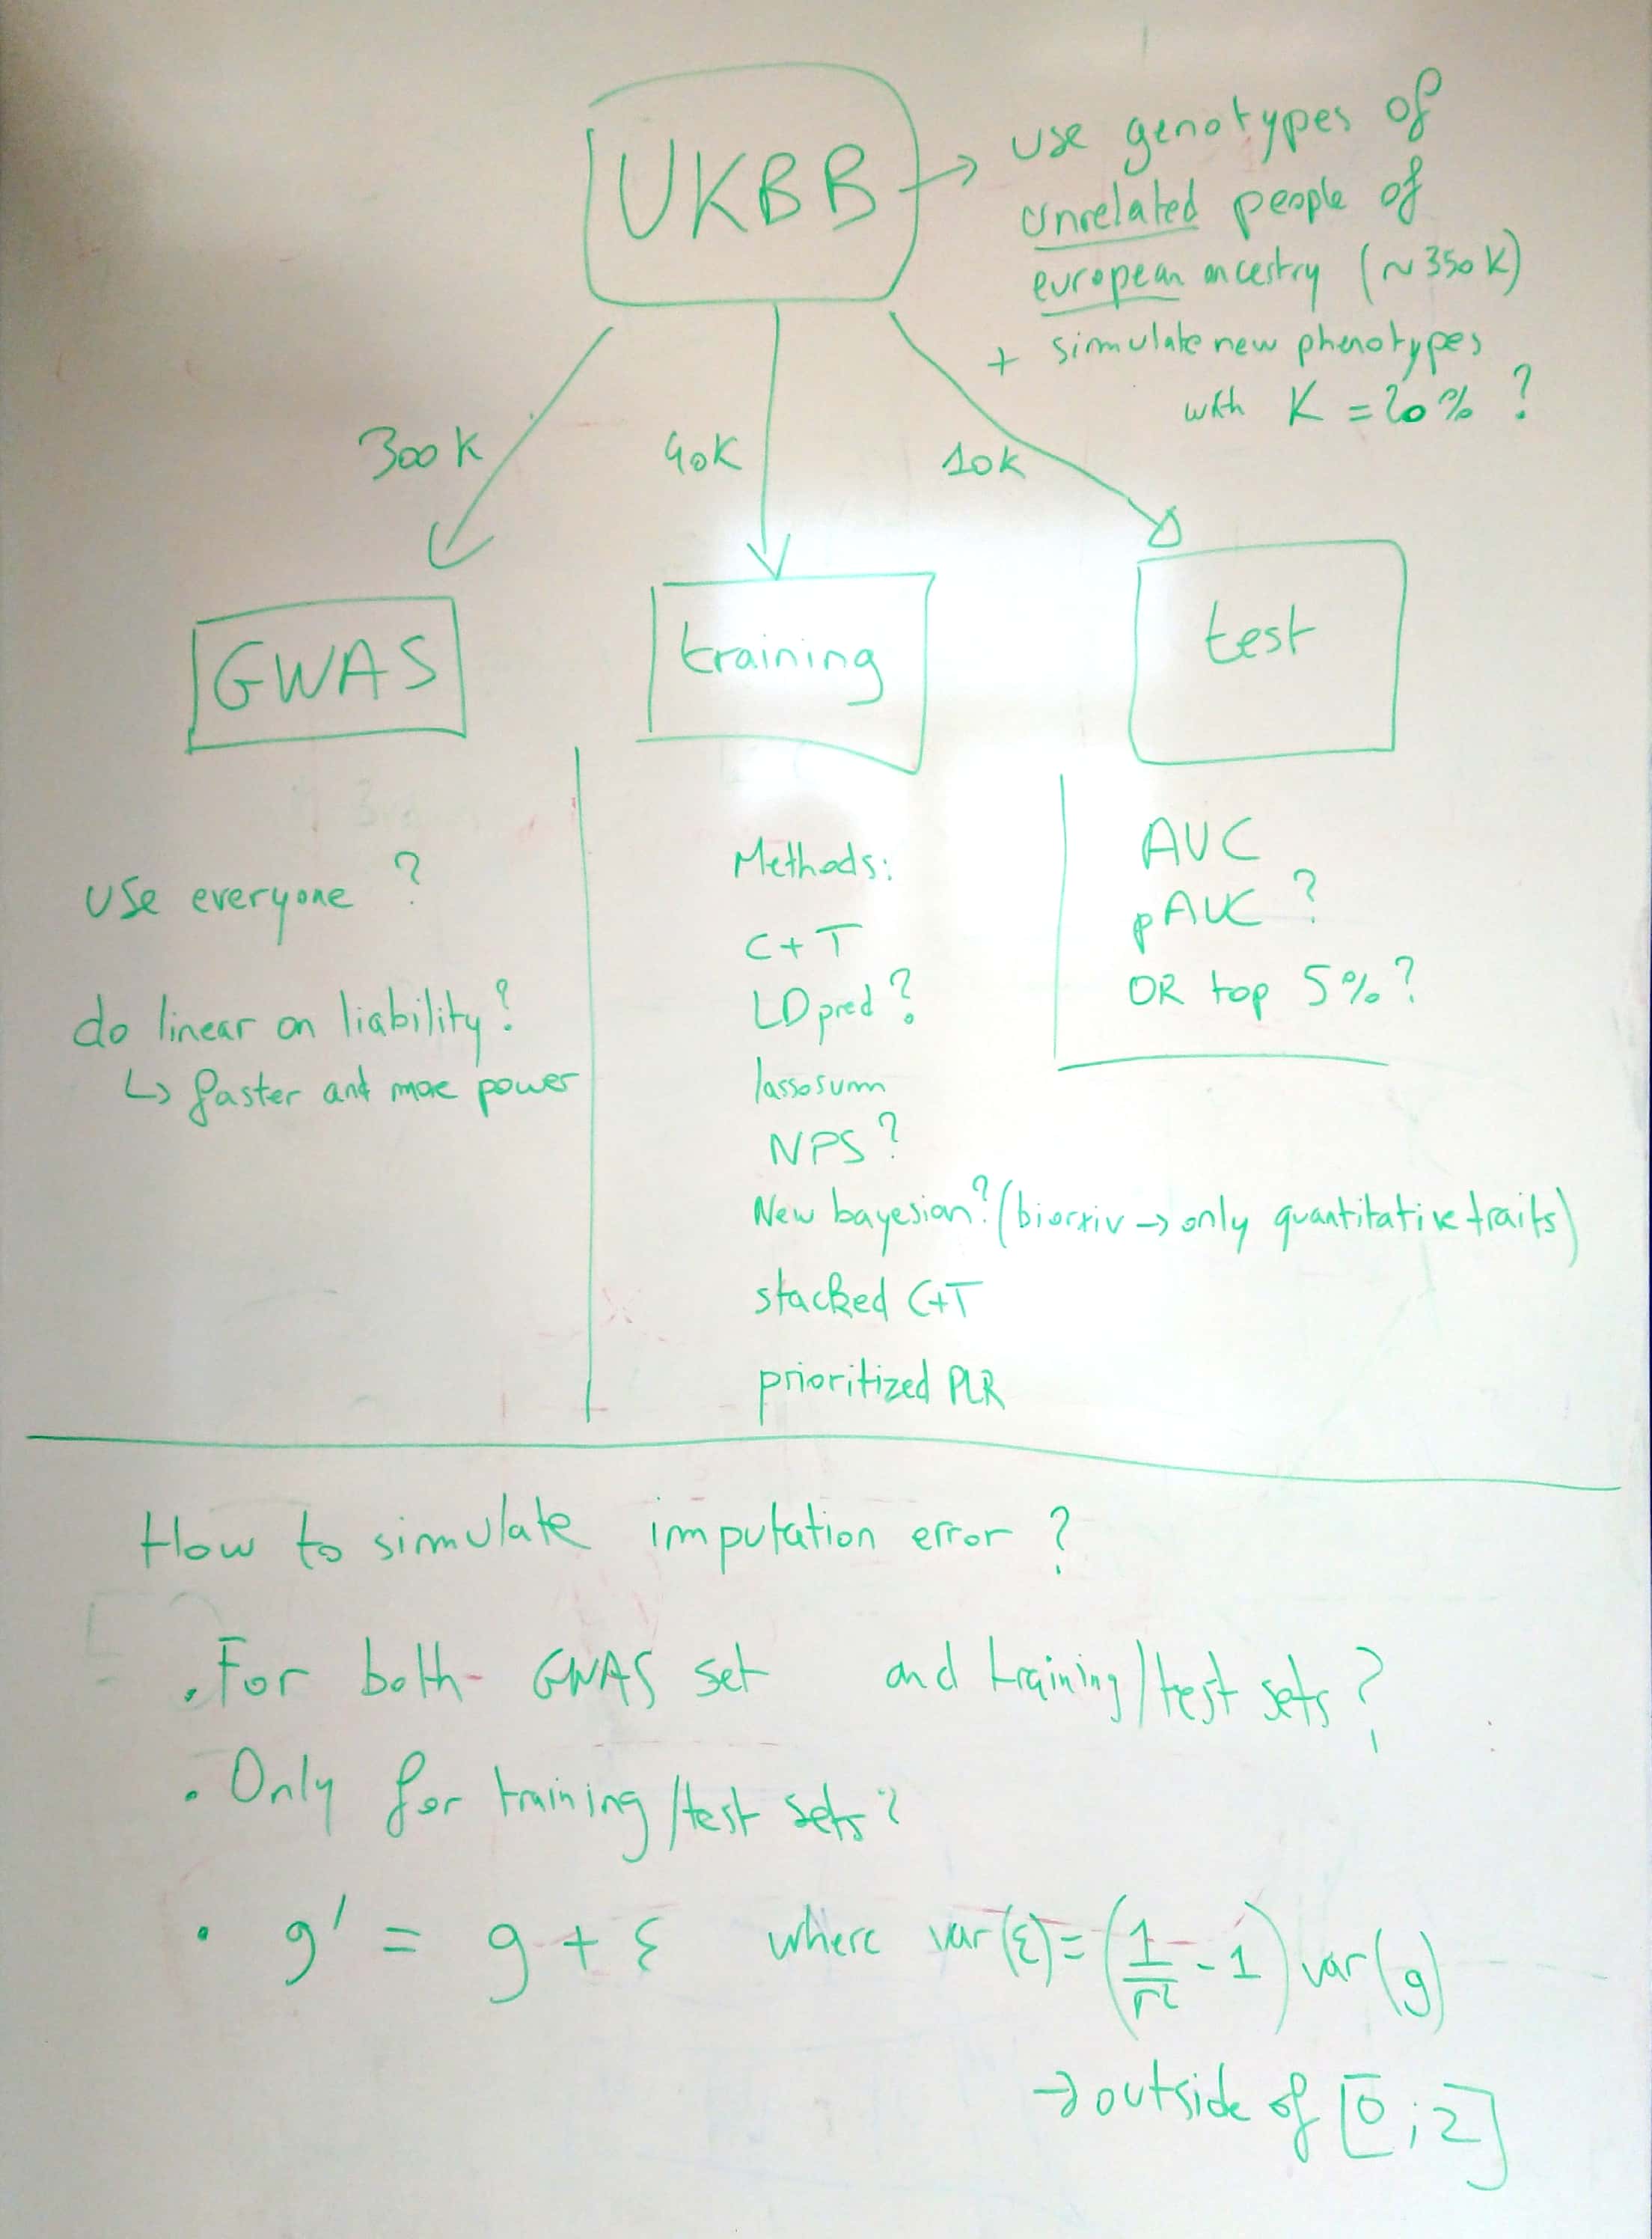 UKBB
→ use genotypes of
unrelated people of
european ancestry (~350K)
+ simulate new phenotypes
with K = 20% ?
300K
40K
10K
GWAS
training
test
use everyone ?
do linear on liability ?
↳ faster and more power
Methods:
C+T
LDpred ?
lassosum
NPS ?
New bayesian? (biorxiv → only quantitative traits)
stacked C+T
prioritized PLR
AUC
pAUC ?
OR top 5% ?
How to simulate imputation error ?
. For both GWAS set and training/test sets ?
. Only for training/test sets ?
. g' = g + ε where var(ε) = (1/r² - 1) var(g)
→ outside of [0 ; 2]